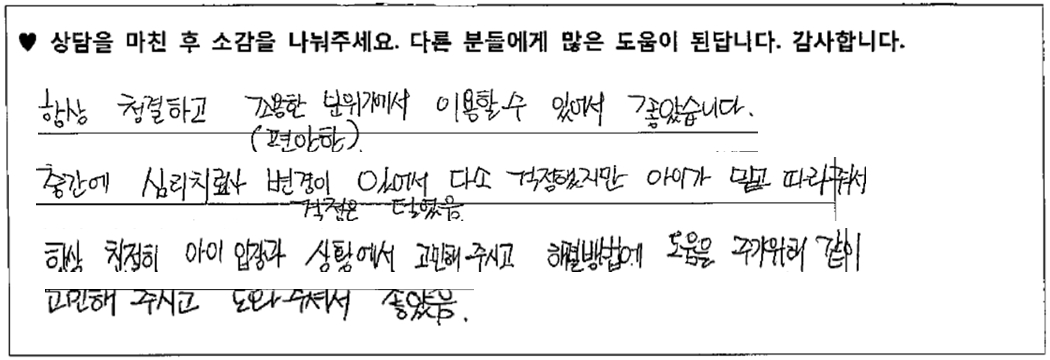 ♥ 상담을 마친 후 소감을 나눠주세요. 다른 분들에게 많은 도움이 된답니다. 감사합니다.
항상 청결하고 조용한 분위기에서 이용할 수 있어서 좋았습니다.
(편안함).
중간에 심리치료사 변경이 있어서 다소 걱정했지만 아이가 믿고 따라줘서
걱정은 덜했음.
항상 친절히 아이 입장과 상황에서 고민해 주시고 해결방법에 도움을 주기위해 같이
고민해 주시고 도와주셔서 좋았음.